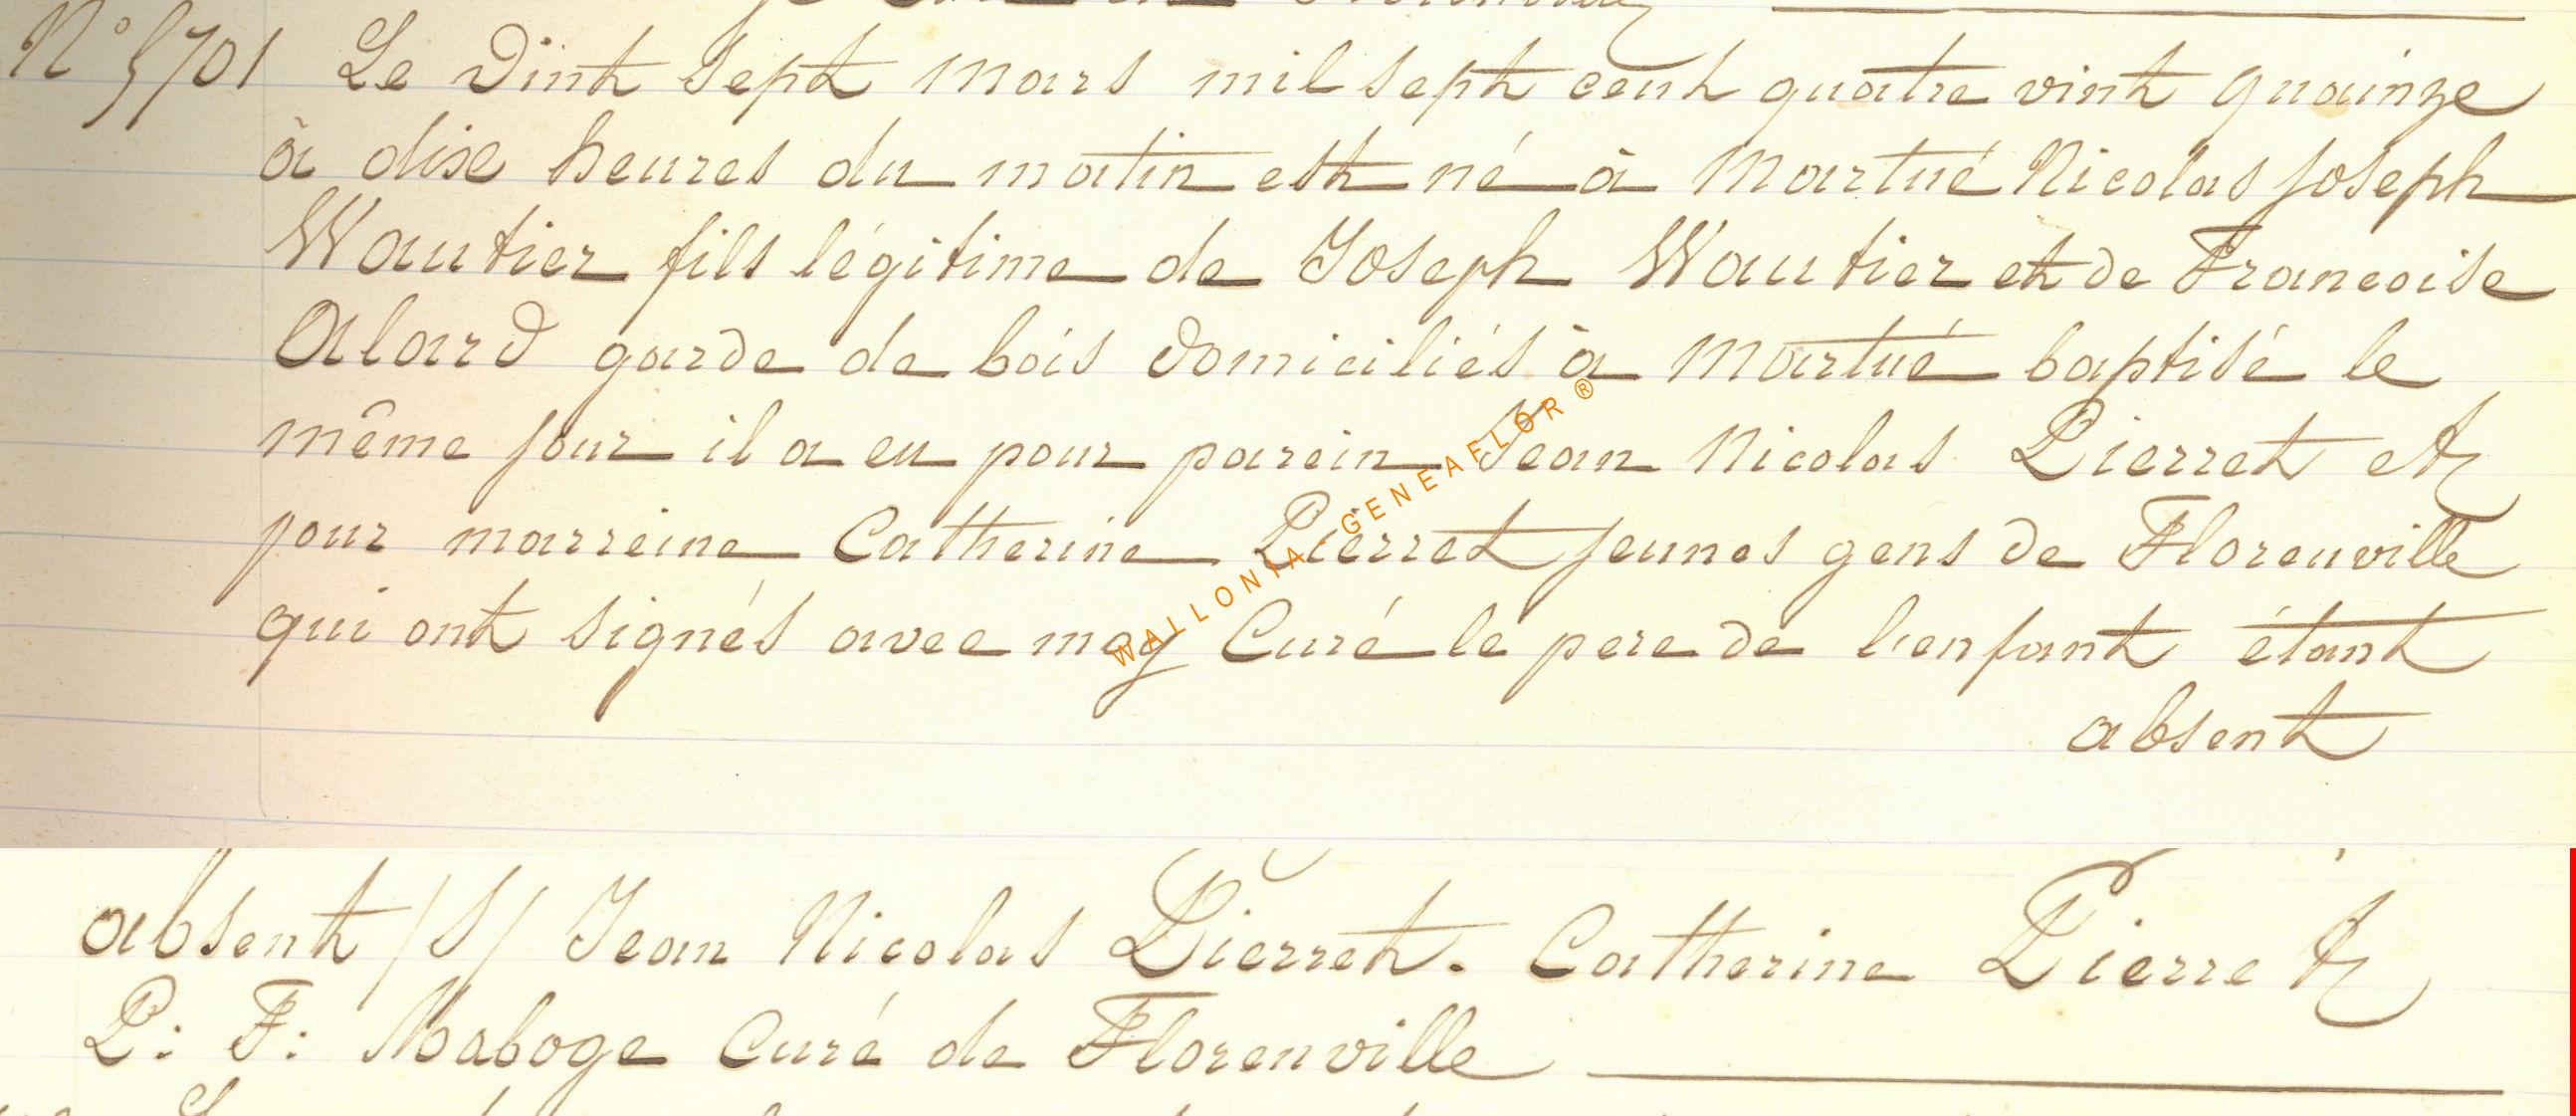 N° 5701 Le Vint Sept Mars mil sept cent quatre vint quainze
à dise heures du matin est né à Martué Nicolas Joseph
Wautier fils légitime de Joseph Wautier et de Francoise
Alard garde de bois domiciliés à Martué baptisé le
même jour il a eu pour parein Jean Nicolas Pierret et
pour marreine Catherine Pierret jeunes gens de Florenville
qui ont signés avec moy Curé le pere de l'enfant étant
absent
WALLONIA GENEAFLOR ®
absent /S/ Jean Nicolas Pierret. Catherine Pierret
P: F: Maboge Curé de Florenville